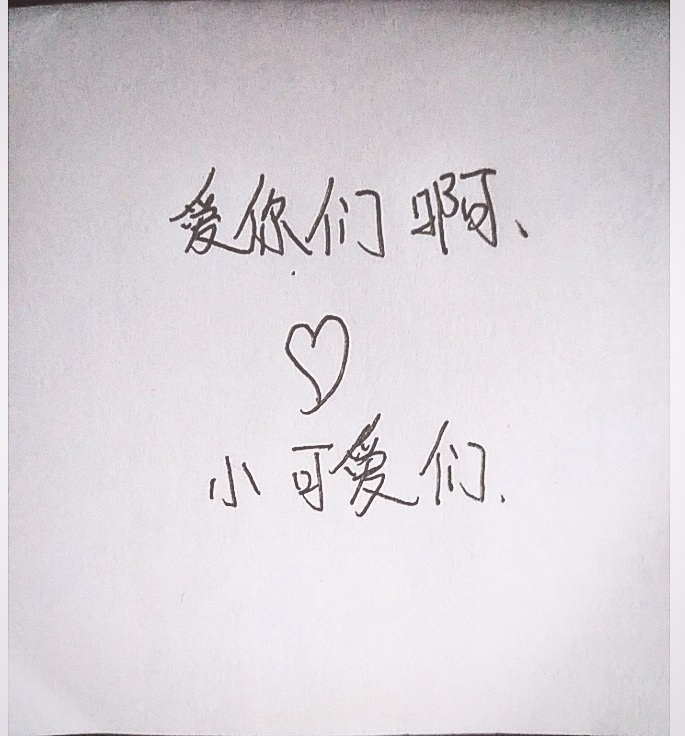 爱你们啊、
小可爱们.